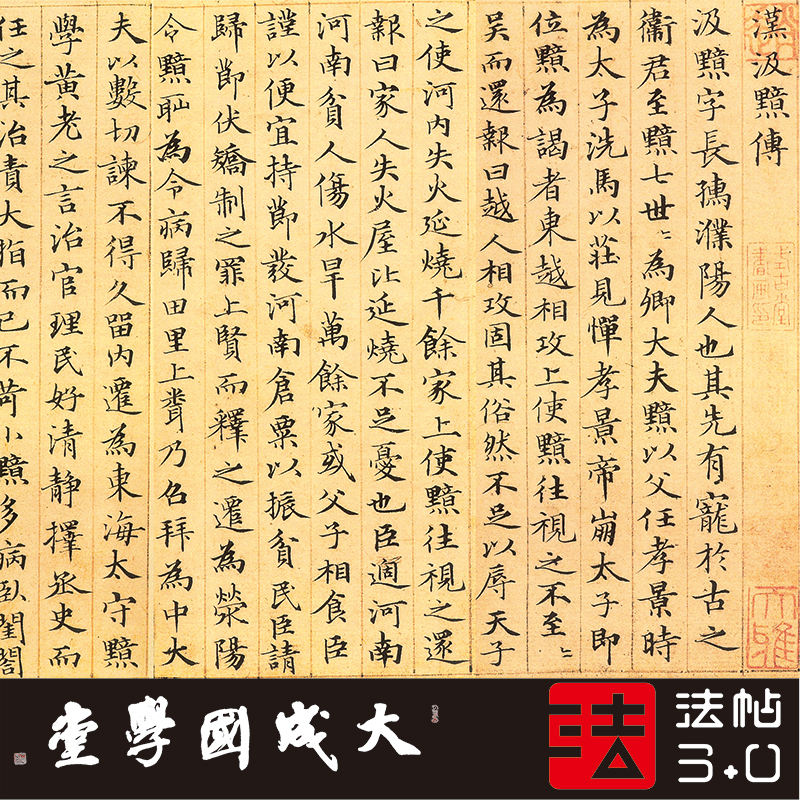 漢汲黯傳
汲黯字長孺濮陽人也其先有寵於古之
衞君至黯七世〻為卿大夫黯以父任孝景時
為太子洗馬以莊見憚孝景帝崩太子即
位黯為謁者東越相攻上使黯往視之不至〻
吳而還報曰越人相攻固其俗然不足以辱天子
之使河內失火延燒千餘家上使黯往視之還
報曰家人失火屋比延燒不足憂也臣適河南
河南貧人傷水旱萬餘家或父子相食臣
謹以便宜持節發河南倉粟以振貧民臣請
歸節伏矯制之罪上賢而釋之遷為滎陽
令黯恥為令病歸田里上聞乃召拜為中大
夫以數切諫不得久留內遷為東海太守黯
學黃老之言治官理民好清靜擇丞史而
任之其治責大指而已不苛小黯多病臥閨閤
大雅
大成國學堂
法
法帖
3.0